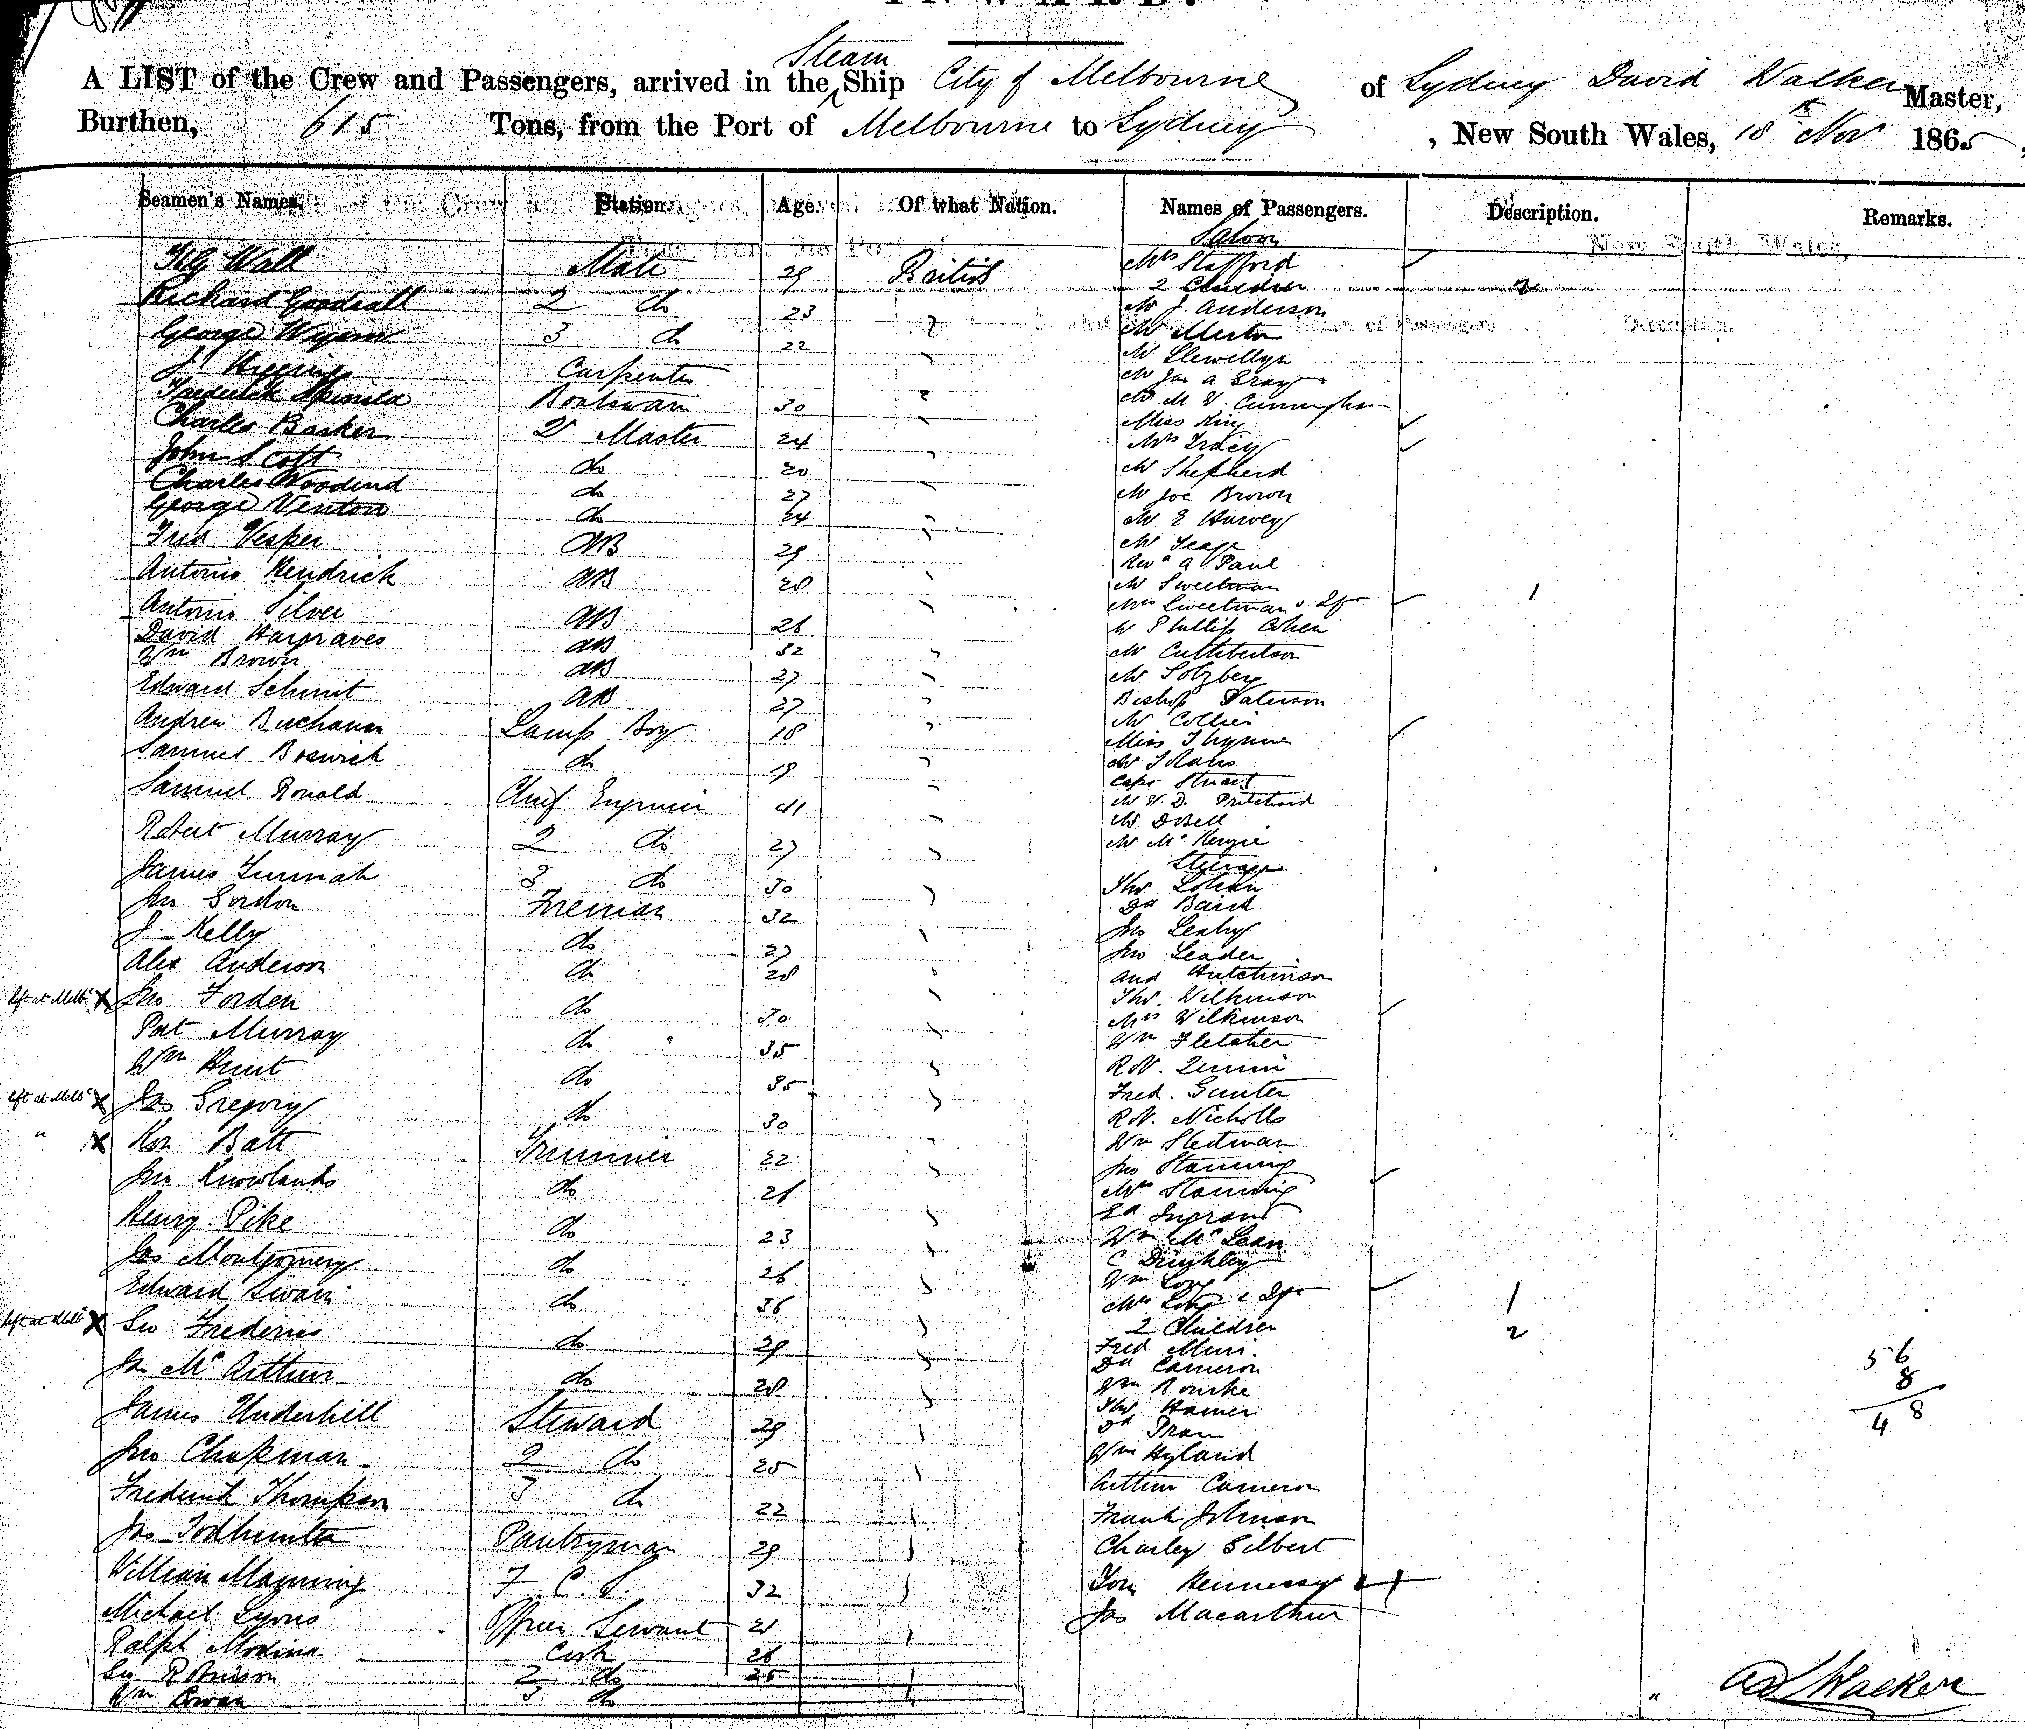 INWARD.
Steam
A LIST of the Crew and Passengers, arrived in the Ship City of Melbourne of Sydney David Walker Master,
Burthen, 615 Tons, from the Port of Melbourne to Sydney, New South Wales, 18th Novr 1865
Seamen's Names. Station. Age. Of what Nation. Names of Passengers. Description. Remarks.
Saloon
Wall Mate 29 British Mrs Stafford
2 Children 2
Richard Goodsall 2 do 23 Mr J. Anderson
George 3 do 22 Mr
J Carpenter Mr Llewellyn
Mr Jas A Gray
Frederick Boatswain 30 Mr M V. Cunningham
Charles Barker 2r Master 24 Miss King
Mrs Tracy
John Scott do 20 Mr Shepherd
Charles Woodend do 27 Mr Joe Brown
George Venton do 24 Mr E Harvey
Fred Vesper AB 29 Mr
Revd A Paul
Antonio Kendrick AB 28 Mr Sweetman
Mrs Sweetman & Inft 1
Antonio Silver AB 26 Mr Phillip Cohen
David Hargraves AB 32 Mr Cuthbertson
Wm Brown AB 27 Mr Solzberg
Edward Schmit AB 27 Bishop Paterson
Andrew Buchanan Lamp Boy 18 Mr Collier
Miss Thynne
Samuel Boswick do 19 Mr
Capt Stuart
Samuel Ronald Chief Engineer 41 Mr W. D. Pritchard
Mr
Robert Murray 2 do 27 Mr McKenzie
Steerage
James 3 do 30 Thos
Jno Gordon Fireman 32 Dd Baird
J. Kelly do 27 Jno Leahy
Jno Leader
Alex Anderson do 28 And Hutchinson
left at Melbe X Jno Forden do 30 Thos. Wilkinson
Mrs Wilkinson
Pat Murray do 35 Wm Fletcher
Wm Hunt do 35 R W.
left at Melbe X Jas Gregory do 30 Fred. Gunter
R W. Nicholls
" X Batt Trimmer 22 Wm Stedman
Jno Rowlands do 26 Jno Stanning
Mrs Stanning
Henry Pike do 23 Ed Ingram
Wm McLean
Jas Montgomery do 26 C
Wm Long
Edward Swain do 36 Mrs Long & Inft 1
left at Melbe X Geo Frederics do 29 2 Children 2
Fred Muir. 56
Jn McArthur do 28 Dd Cameron 8
Wm Rourke 48
James Underhill Steward 29 Thos Hamer
Jno Chapman 2 do 25 Wm Hyland
Frederick Thompson 3 do 22 Arthur Cameron
Frank Johnson
Jas Todhunter Pantryman 29 Charley Gilbert
William Manning F. C. S. 32 Tom Hennessy
Michael Lyons Officers Servant 21 Jas Macarthur
Ralph Cook 26
Geo Robinson 2 do 25
Wm 3 do
Walker